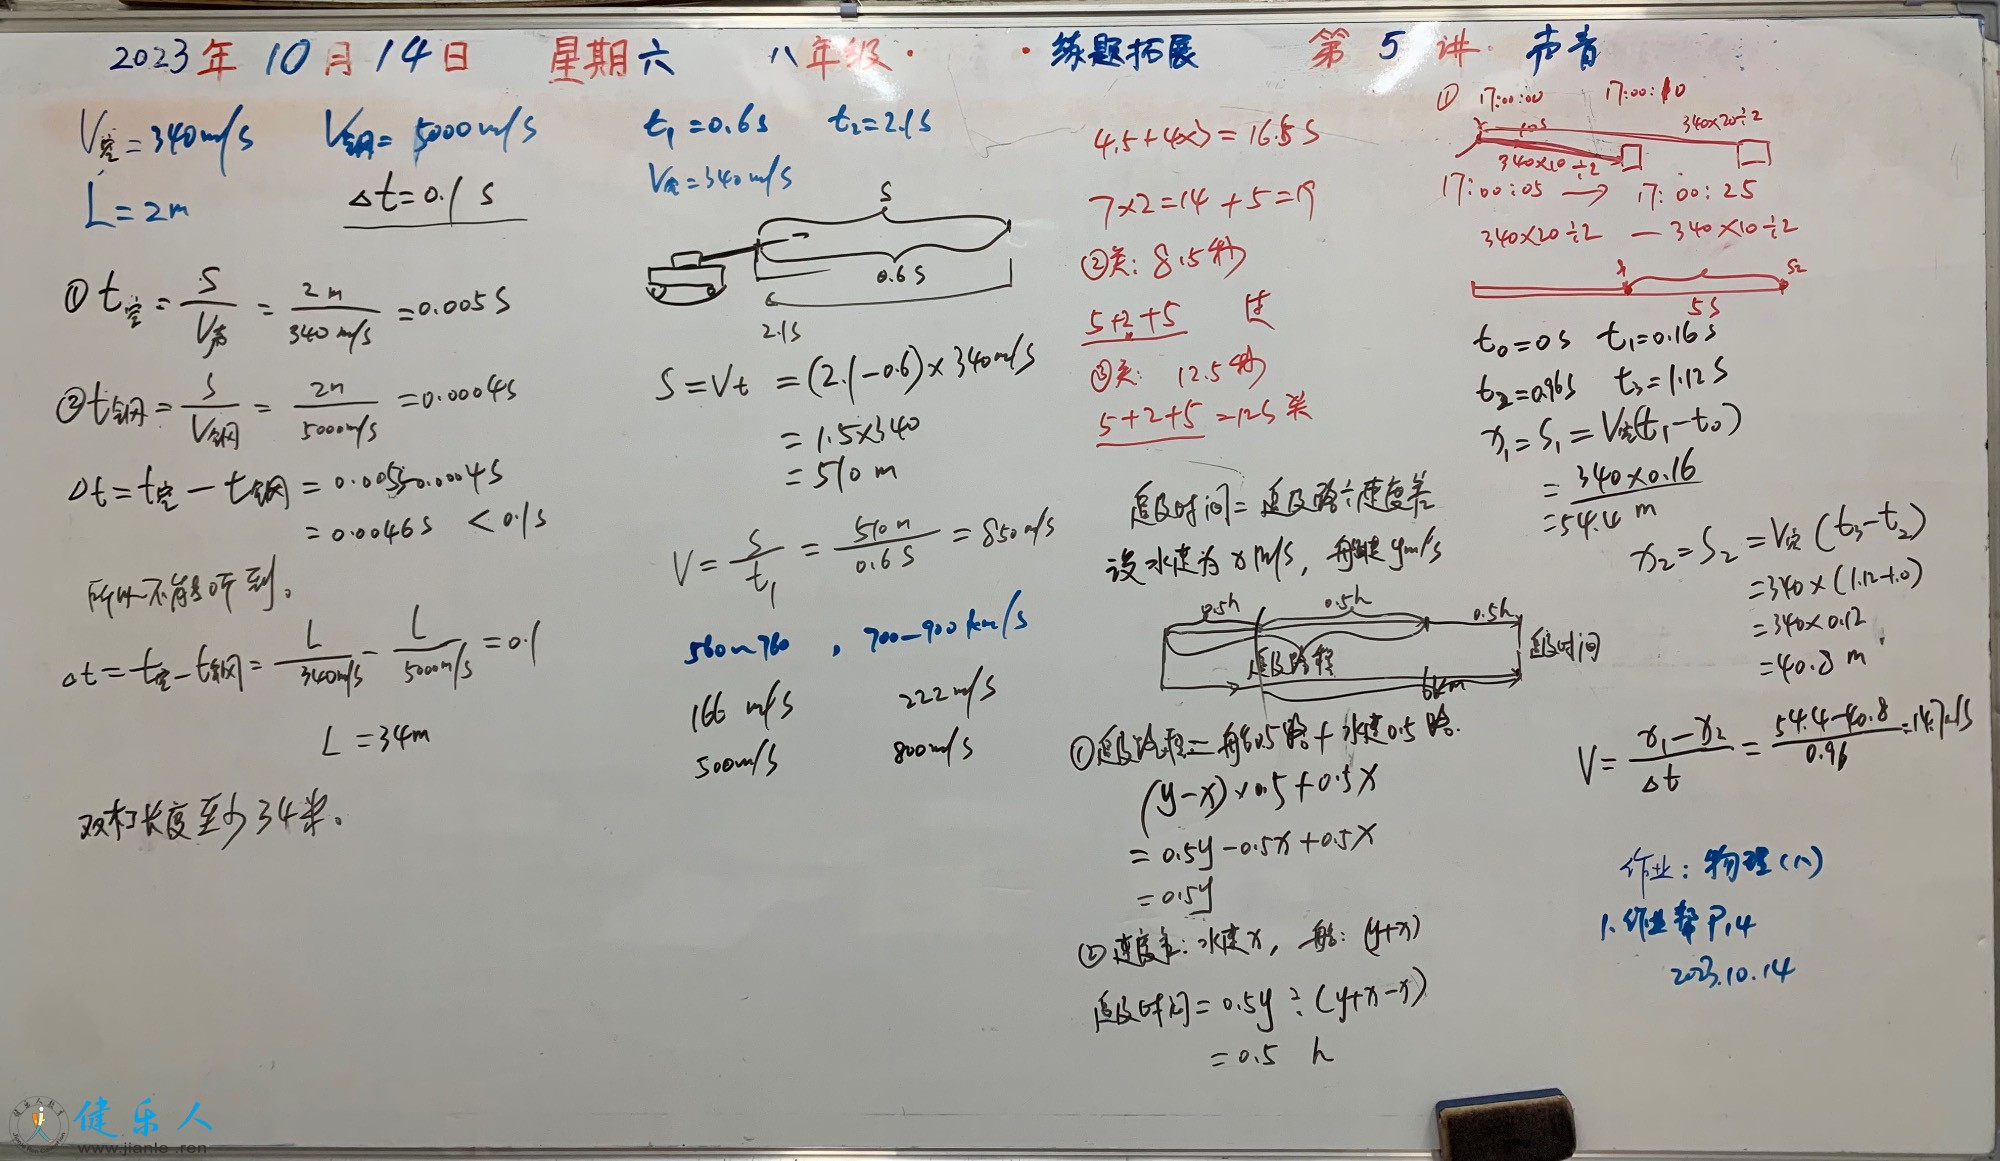 2023年10月14日 星期六 八年级· ·练题拓展 第5讲 声音
V空=340m/s V钢=5000m/s
L=2m △t=0.1s
①t空=S/V声=2m/340m/s=0.005s
②t钢=S/V钢=2m/5000m/s=0.0004s
△t=t空-t钢=0.005-0.0004s
=0.0046s <0.1s
所以不能听到。
△t=t空-t钢=L/340m/s-L/5000m/s=0.1
L=34m
双杠长度至少34米。
t₁=0.6s t₂=2.1s
V空=340m/s
S
0.6s
2.1s
S=Vt=(2.1-0.6)×340m/s
=1.5×340
=510m
V=S/t₁=510m/0.6s=850m/s
560~760,700-900km/s
166m/s 222m/s
500m/s 800m/s
4.5+4×3=16.5s
7×2=14+5=19
②关:8.5秒
5+2+5
③关:12.5秒
5+2+5=12s 关
追及时间=追及路÷速度差
设水速为xm/s,船速ym/s
0.5h 0.5h 0.5h
追及路程 追及时间
6km
①追及路程=船0.5路+水速0.5路.
(y-x)×0.5+0.5x
=0.5y-0.5x+0.5x
=0.5y
②速度差:水速x,船:(y+x)
追及时间=0.5y÷(y+x-x)
=0.5 h
① 17:00:00 17:00:10
10s 340×20÷2
340×10÷2
17:00:05→17:00:25
340×20÷2-340×10÷2
S₂
5s
t₀=0s t₁=0.16s
t₂=0.96s t₃=1.12s
x₁=S₁=V空(t₁-t₀)
=340×0.16
=54.4m
x₂=S₂=V空(t₃-t₂)
=340×(1.12-1.0)
=340×0.12
=40.8m
V=x₁-x₂/△t=54.4-40.8/0.96=14.7m/s
作业:物理(八)
1.作业帮P.14
2023.10.14
健乐人
www.jianle.ren